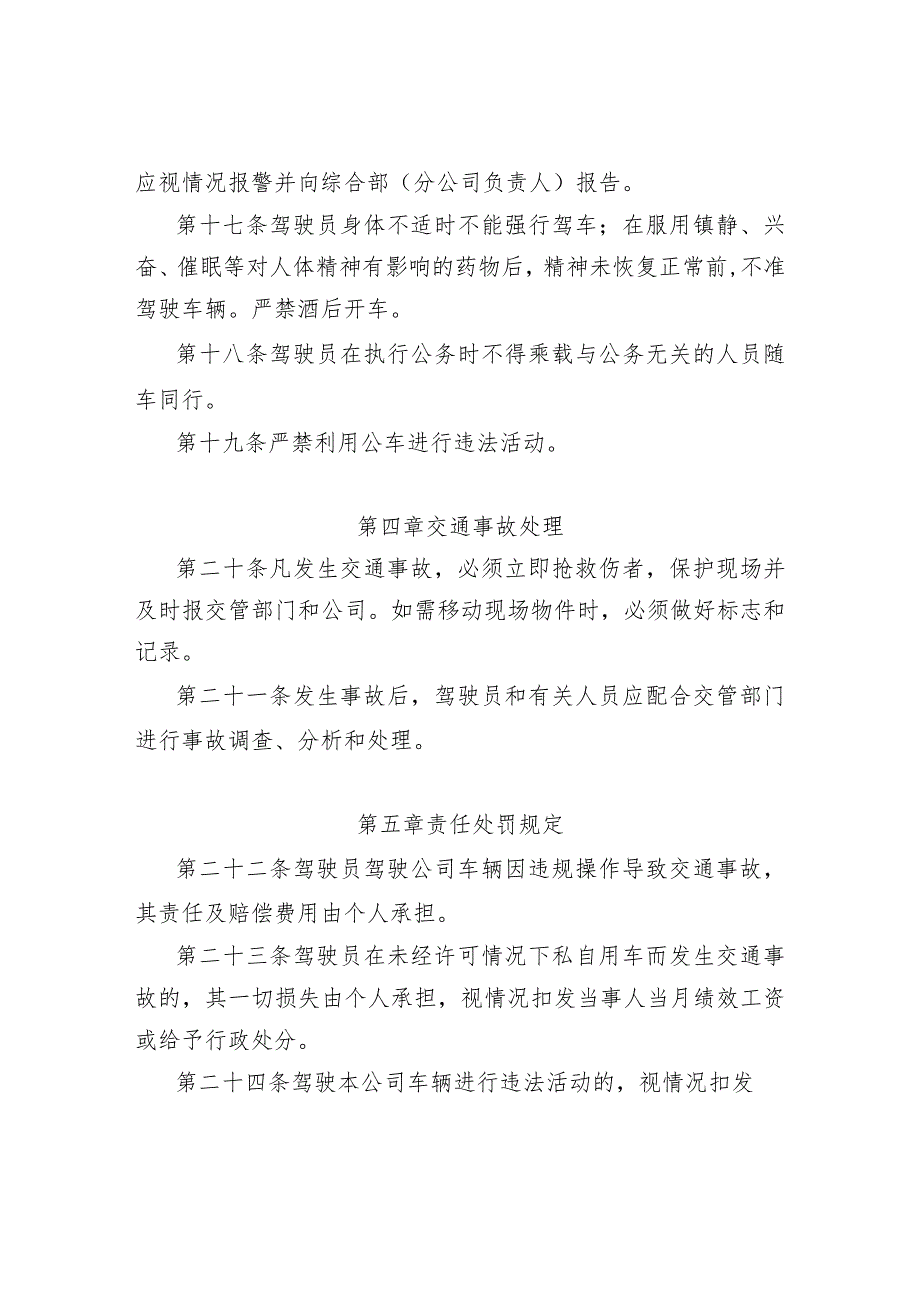 应视情况报警并向综合部（分公司负责人）报告。
第十七条驾驶员身体不适时不能强行驾车；在服用镇静、兴
奋、催眠等对人体精神有影响的药物后，精神未恢复正常前,不准
驾驶车辆。严禁酒后开车。
第十八条驾驶员在执行公务时不得乘载与公务无关的人员随
车同行。
第十九条严禁利用公车进行违法活动。
第四章交通事故处理
第二十条凡发生交通事故，必须立即抢救伤者，保护现场并
及时报交管部门和公司。如需移动现场物件时，必须做好标志和
记录。
第二十一条发生事故后，驾驶员和有关人员应配合交管部门
进行事故调查、分析和处理。
第五章责任处罚规定
第二十二条驾驶员驾驶公司车辆因违规操作导致交通事故，
其责任及赔偿费用由个人承担。
第二十三条驾驶员在未经许可情况下私自用车而发生交通事
故的，其一切损失由个人承担，视情况扣发当事人当月绩效工资
或给予行政处分。
第二十四条驾驶本公司车辆进行违法活动的，视情况扣发